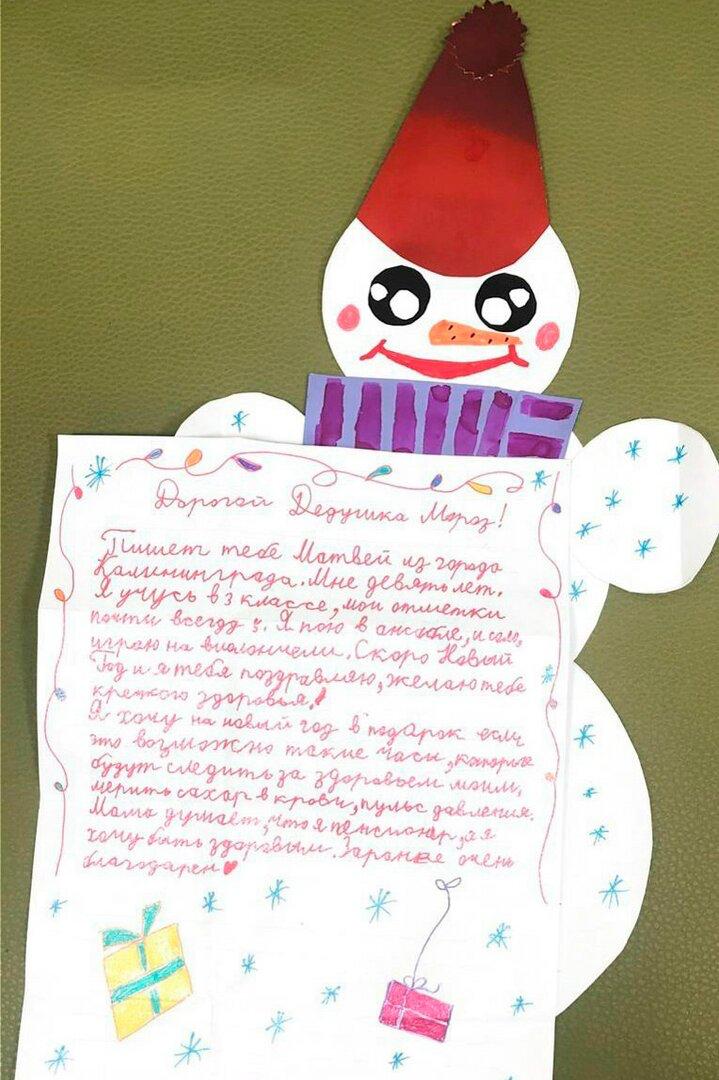 Дорогой Дедушка Мороз!
Пишет тебе Матвей из города
Калининграда. Мне девять лет.
Я учусь в 3 классе, мои отметки
почти всегда 5. Я пою в ансабле, и соло,
играю на виолончели. Скоро Новый
Год и я тебя поздравляю, желаю тебе
крепкого здоровья!
Я хочу на новый год в подарок если
это возможно такие часы, которые
будут следить за здоровьем моим,
мерить сахар в крови, пульс давления.
Мама думает, что я пенсионер, а я
хочу быть здоровым. Заранее очень
благодарен